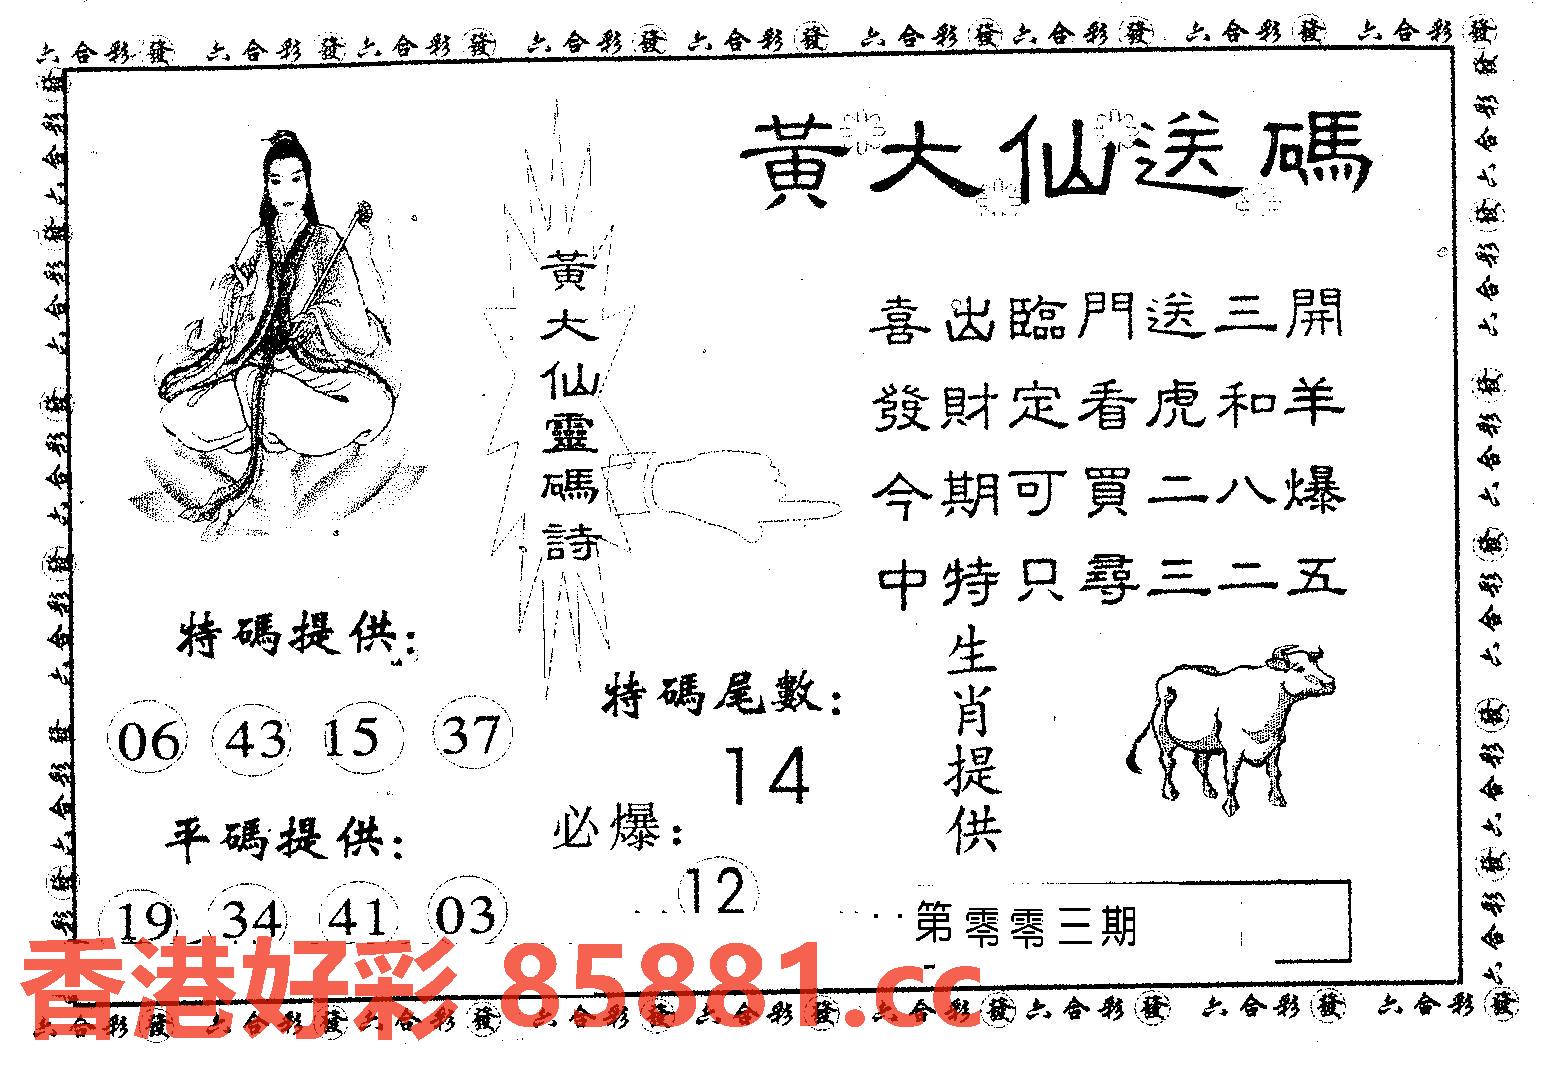 六合彩發 六合彩發 六合彩發 六合彩發 六合彩發 六合彩發 六合彩發 六合彩發 六合彩發
黃大仙送碼
黃大仙靈碼詩
喜出臨門送三開
發財定看虎和羊
今期可買二八爆
中特只尋三二五
特碼提供:
06 43 15 37
平碼提供:
19 34 41 03
特碼尾數:
14
必爆:
12
生肖提供
第零零三期
香港好彩 85881.cc
六合彩發 六合彩發 六合彩發 六合彩發 六合彩發 六合彩發 六合彩發 六合彩發 六合彩發